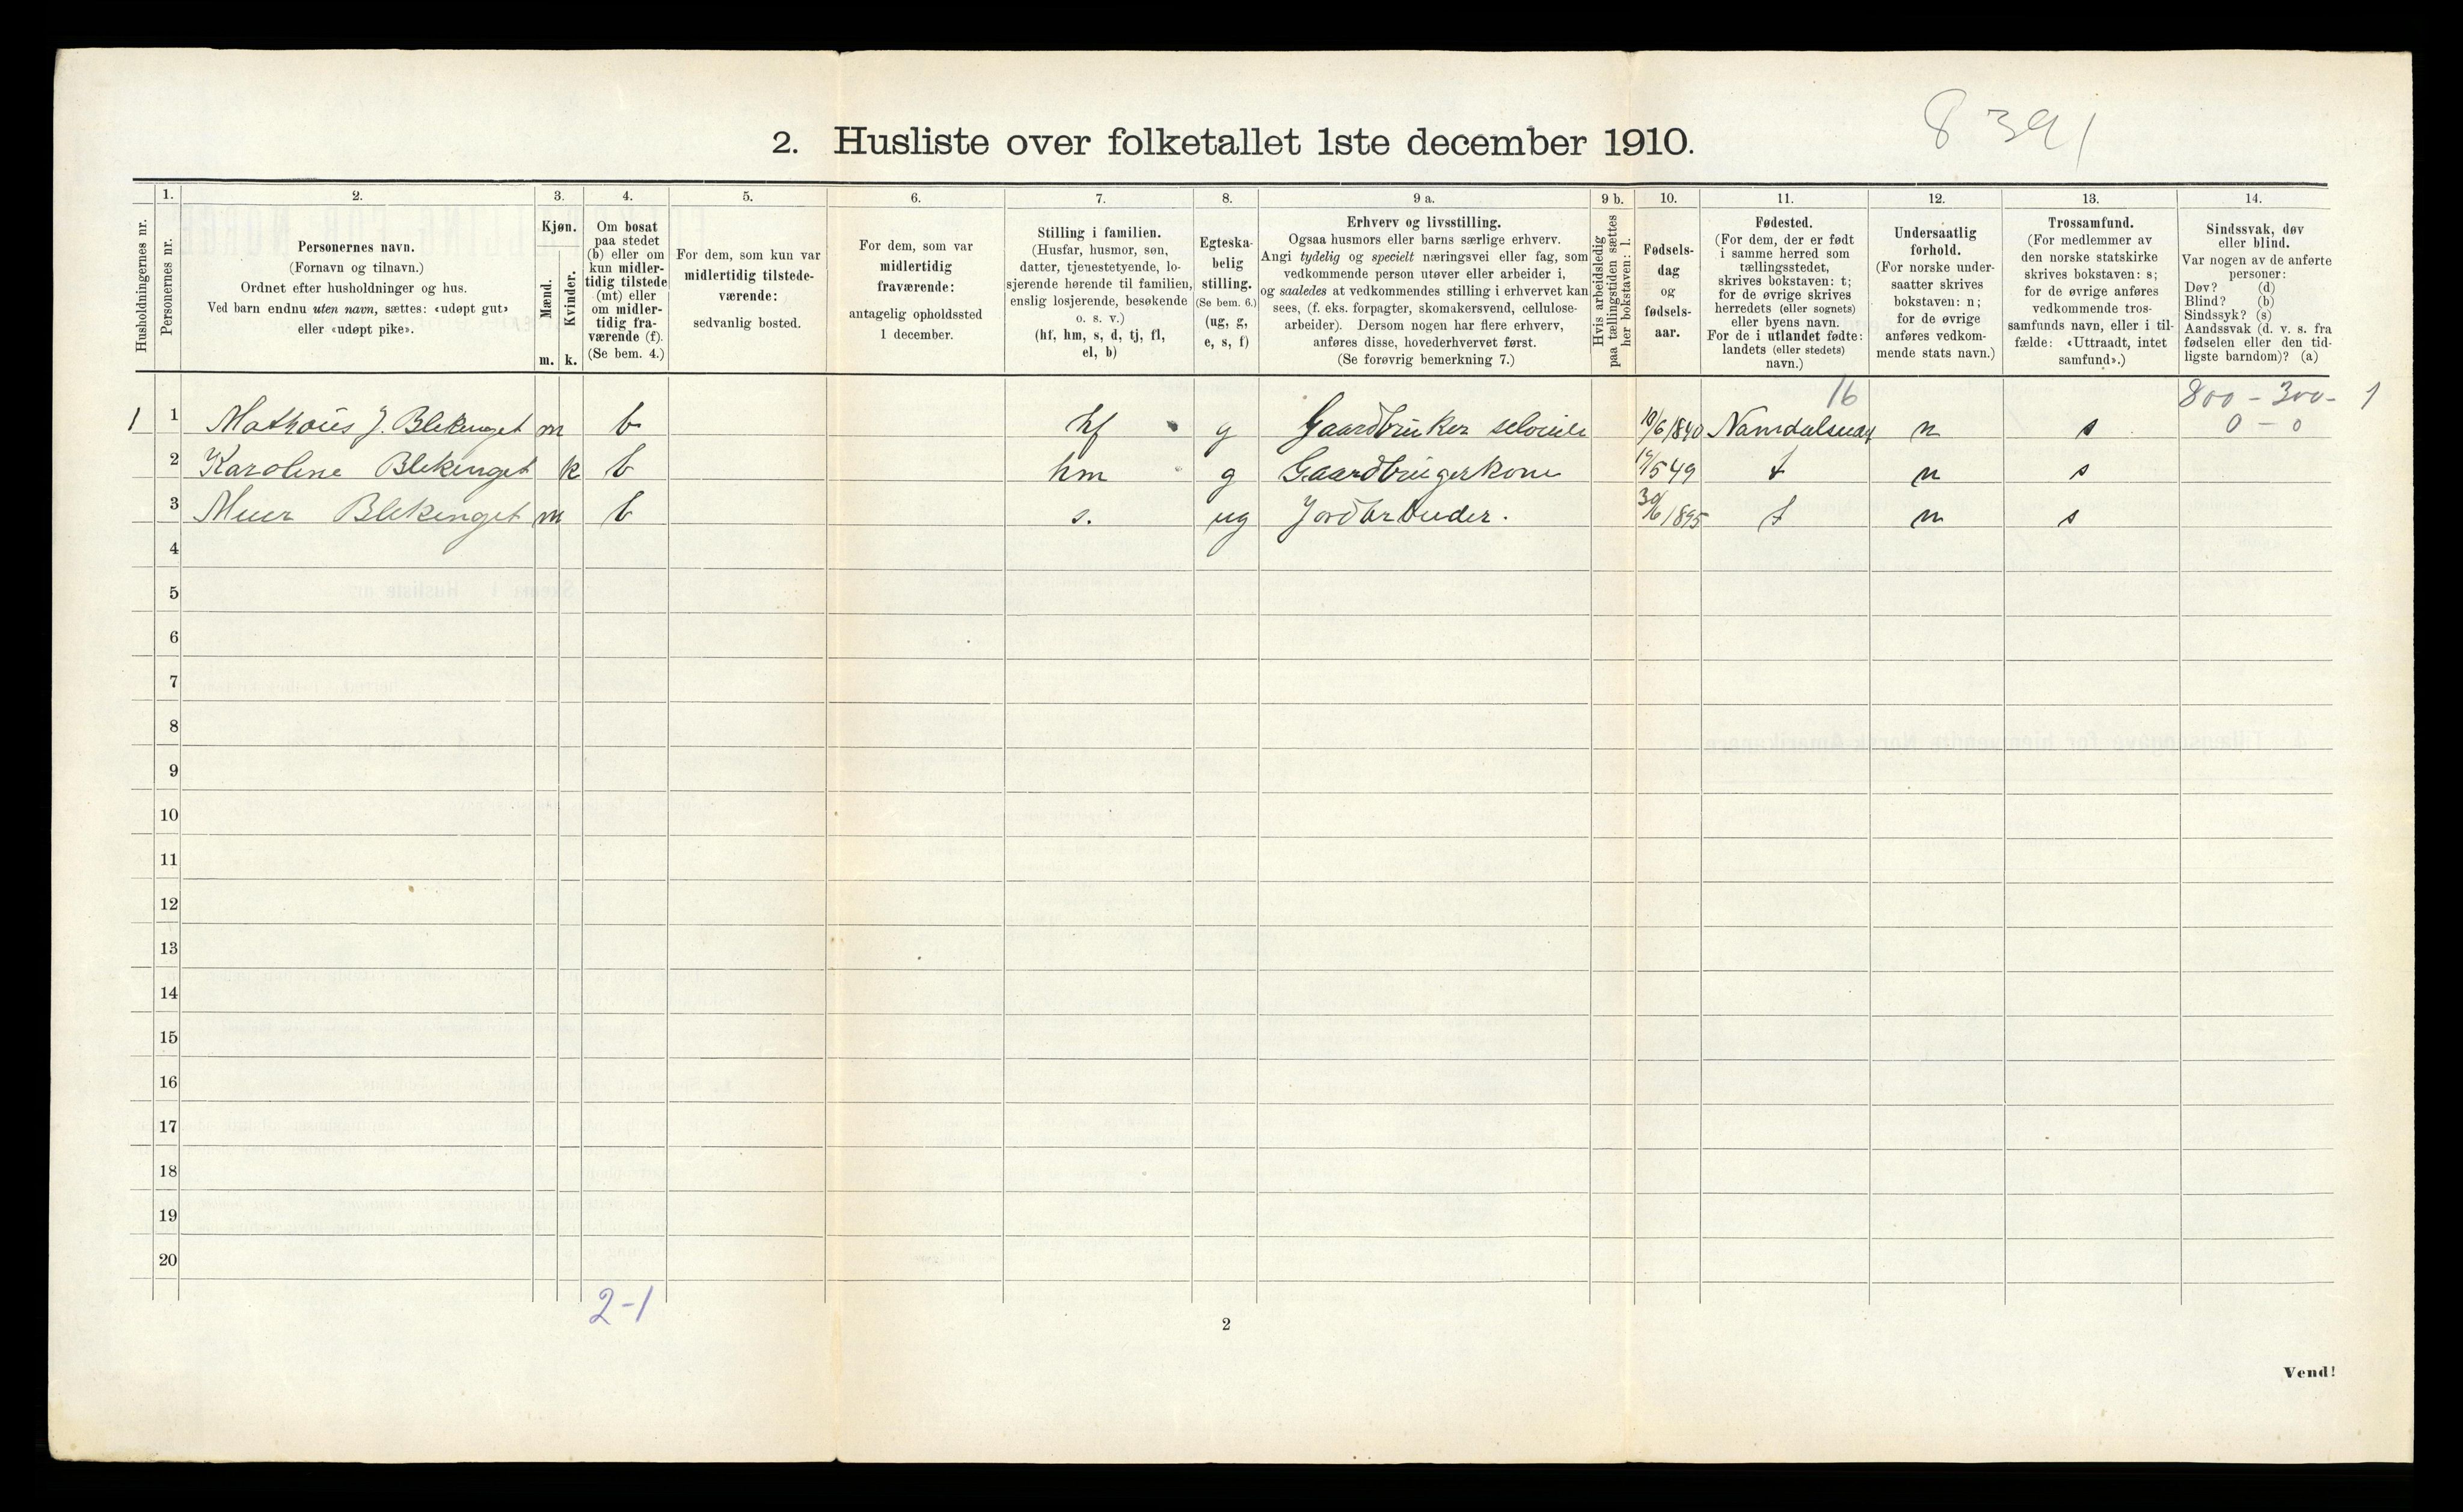 8391
2. Husliste over folketallet 1ste december 1910.
Husholdningernes nr.
1.
Personernes nr.
2.
Personernes navn.
(Fornavn og tilnavn.)
Ordnet efter husholdninger og hus.
Ved barn endnu uten navn, sættes: «udøpt gut»
eller «udøpt pike».
3.
Kjøn.
Mænd.
Kvinder.
m. k.
4.
Om bosat
paa stedet
(b) eller om
kun midler-
tidig tilstede
(mt) eller
om midler-
tidig fra-
værende (f).
(Se bem. 4.)
5.
For dem, som kun var
midlertidig tilstede-
værende:
sedvanlig bosted.
6.
For dem, som var
midlertidig
fraværende:
antagelig opholdssted
1 december.
7.
Stilling i familien.
(Husfar, husmor, søn,
datter, tjenestetyende, lo-
sjerende hørende til familien,
enslig losjerende, besøkende
o. s. v.)
(hf, hm, s, d, tj, fl,
el, b)
8.
Egteska-
belig
stilling.
(Se bem. 6.)
(ug, g,
e, s, f)
9 a.
Erhverv og livsstilling.
Ogsaa husmors eller barns særlige erhverv.
Angi tydelig og specielt næringsvei eller fag, som
vedkommende person utøver eller arbeider i,
og saaledes at vedkommendes stilling i erhvervet kan
sees, (f. eks. forpagter, skomakersvend, cellulose-
arbeider). Dersom nogen har flere erhverv,
anføres disse, hovederhvervet først.
(Se forøvrig bemerkning 7.)
9 b.
Hvis arbeidsledig
paa tællingstiden sættes
her bokstaven: l.
10.
Fødsels-
dag
og
fødsels-
aar.
11.
Fødested.
(For dem, der er født
i samme herred som
tællingsstedet,
skrives bokstaven: t;
for de øvrige skrives
herredets (eller sognets)
eller byens navn.
For de i utlandet fødte:
landets (eller stedets)
navn.)
12.
Undersaatlig
forhold.
(For norske under-
saatter skrives
bokstaven: n;
for de øvrige
anføres vedkom-
mende stats navn.)
13.
Trossamfund.
(For medlemmer av
den norske statskirke
skrives bokstaven: s;
for de øvrige anføres
vedkommende tros-
samfunds navn, eller i til-
fælde: «Uttraadt, intet
samfund».)
14.
Sindssvak, døv
eller blind.
Var nogen av de anførte
personer:
Døv? (d)
Blind? (b)
Sindssyk? (s)
Aandssvak (d. v. s. fra
fødselen eller den tid-
ligste barndom)? (a)
16
800 - 300 - 1
0 - 0
1 1 J. Blekinget m b hf g Gaardbruker 10/6 1840 n s
2 Karoline Blekinget k b hm g 549 t n s
3 Blekinget m b s. ug 30/6 1895 t n s
4
5
6
7
8
9
10
11
12
13
14
15
16
17
18
19
20
2-1
2
Vend!